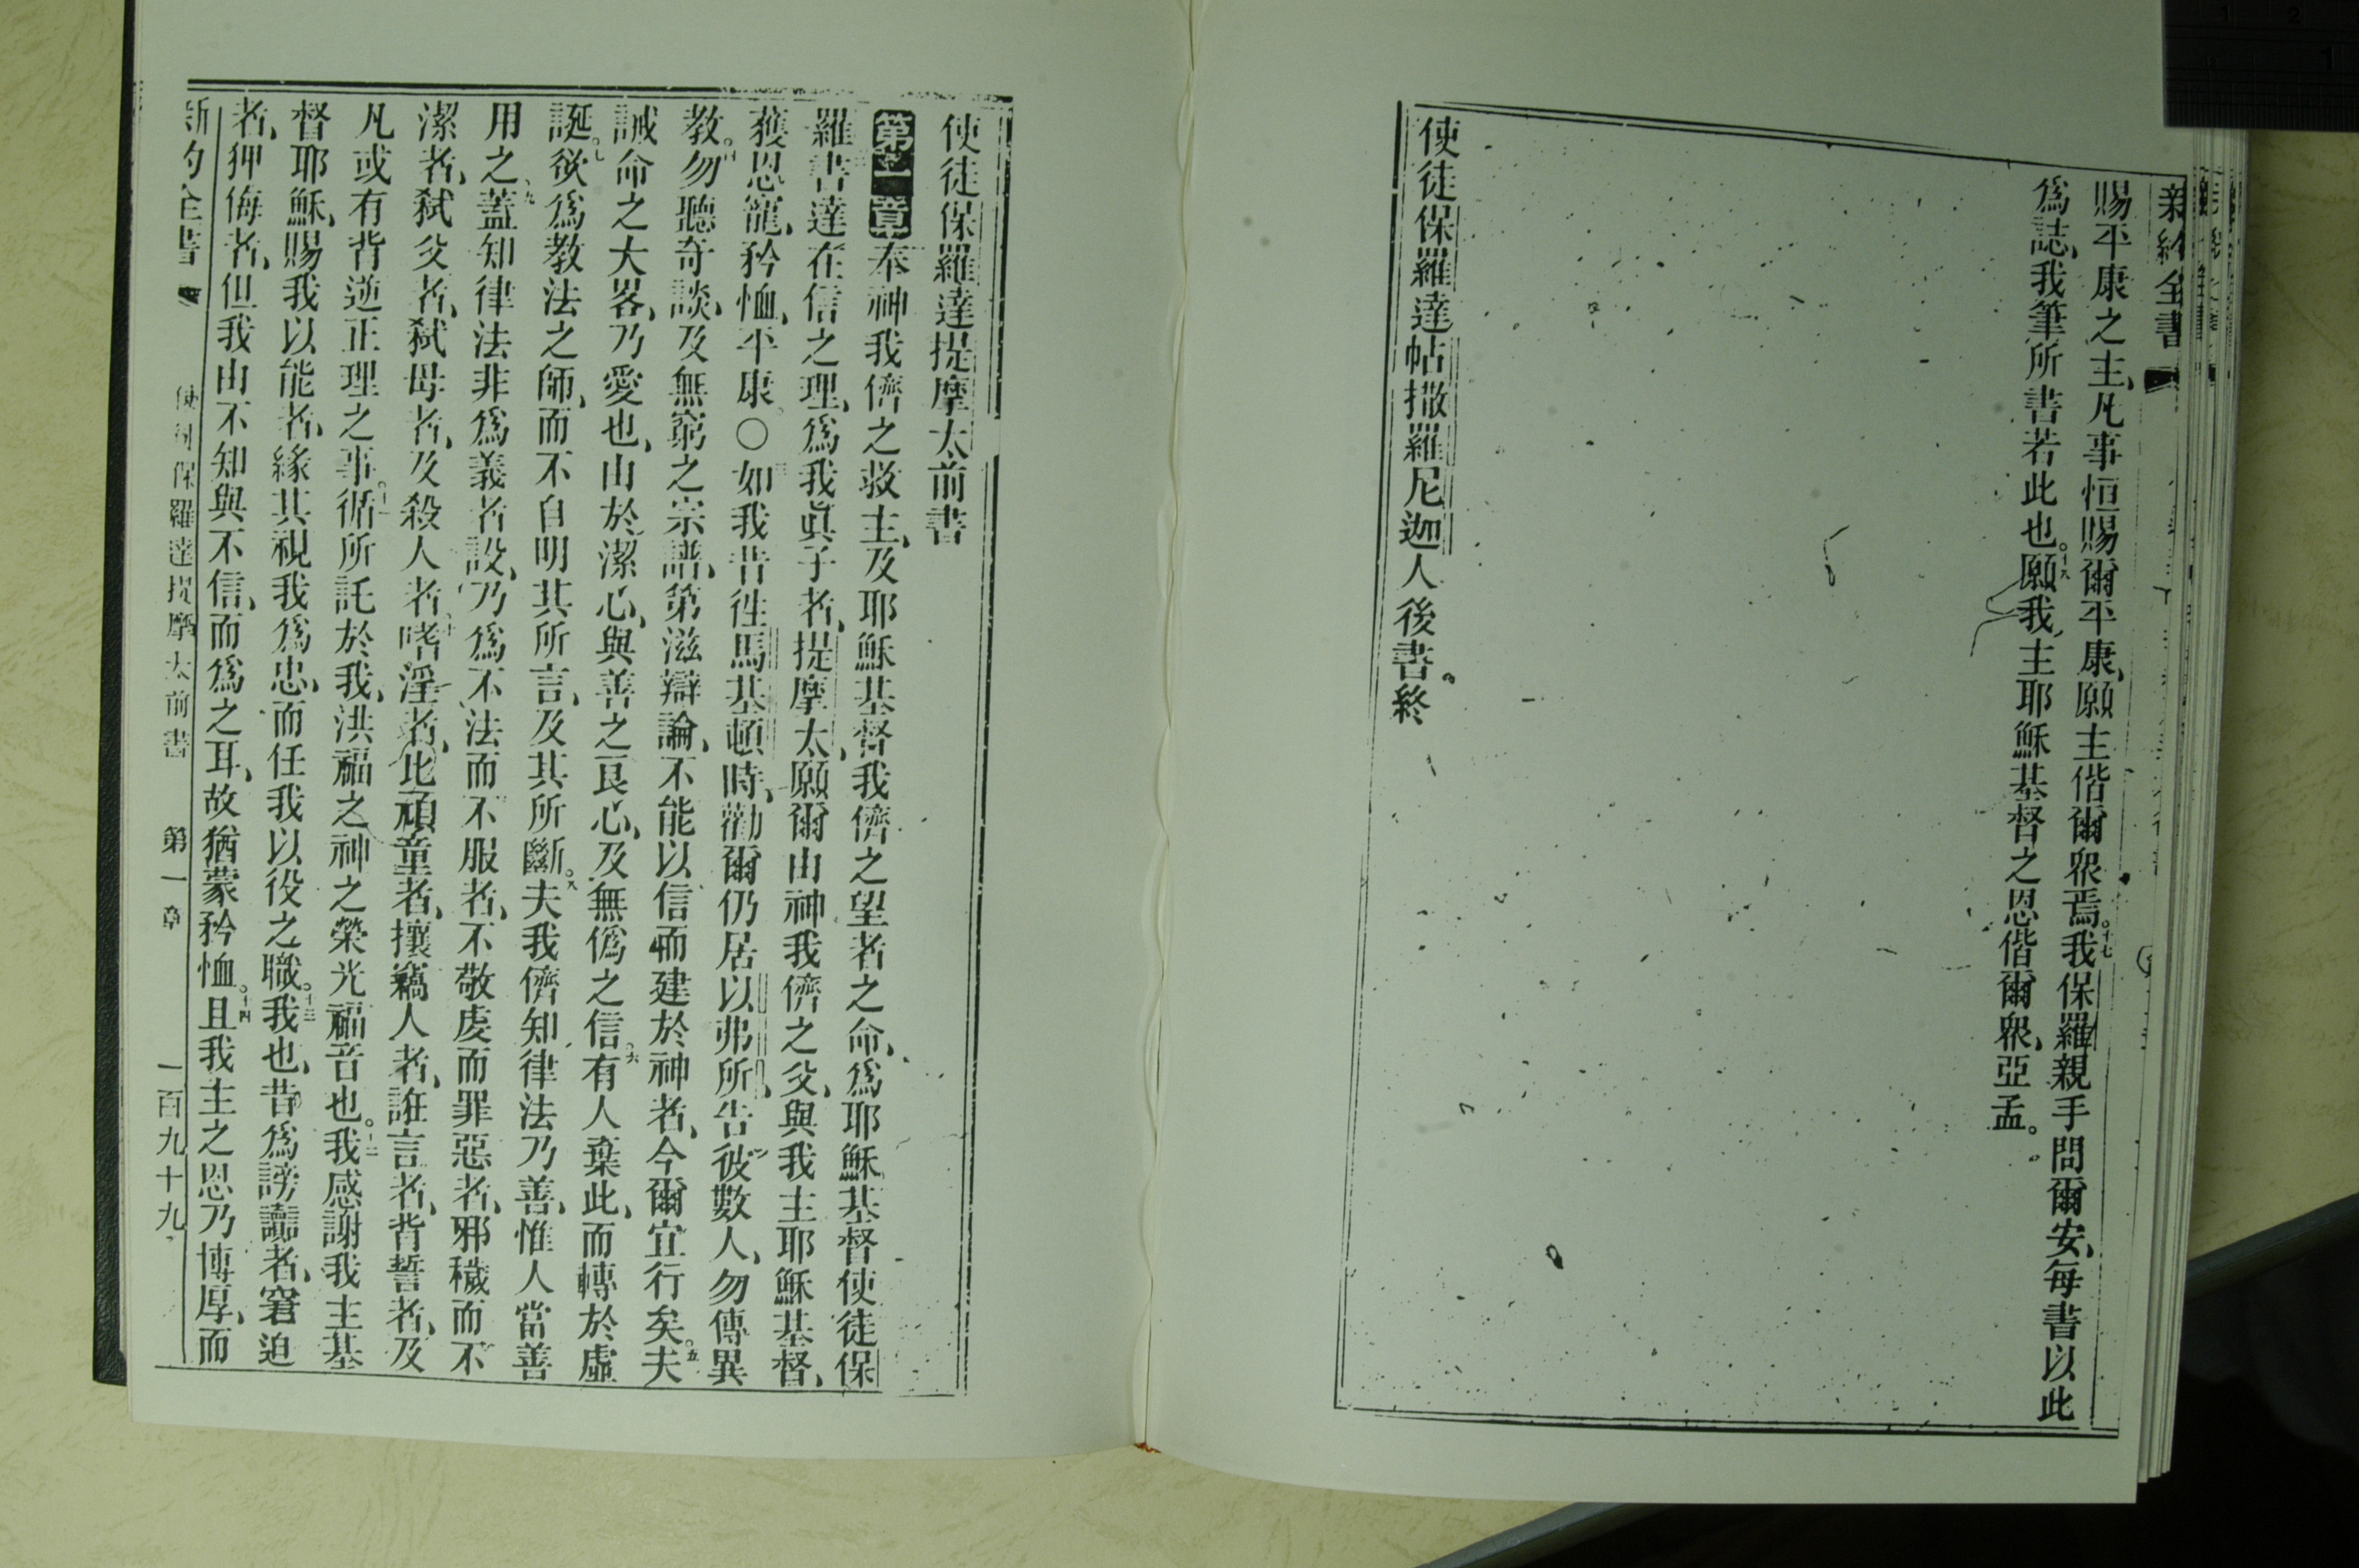 新約全書
賜平康之主、凡事恒賜爾平康、願主偕爾衆焉。十七我保羅親手問爾安、每書以此
爲誌、我筆所書若此也。十八願我主耶穌基督之恩偕爾衆、亞孟。
使徒保羅達帖撒羅尼迦人後書終
使徒保羅達提摩太前書
第一章奉神我儕之救主、及耶穌基督我儕之望者之命、爲耶穌基督使徒保
羅書達在信之理、爲我眞子者、提摩太、願爾由神我儕之父、與我主耶穌基督、
獲恩寵、矜恤、平康〇如我昔徃馬基頓時、勸爾仍居以弗所、告彼數人、勿傳異
教。勿聽奇談、及無窮之宗譜、第滋辯論、不能以信而建於神者、今爾宜行矣。五夫
誡命之大畧、乃愛也、由於潔心、與善之良心、及無僞之信。六有人棄此、而轉於虛
誕。七欲爲教法之師、而不自明其所言、及其所斷。八夫我儕知律法乃善、惟人當善
用之、九蓋知律法非爲義者設、乃爲不法而不服者、不敬虔而罪惡者、邪穢而不
潔者、弑父者、弑母者、及殺人者、十嗜淫者、比頑童者、攘竊人者、誑言者、背誓者、及
凡或有背逆正理之事。十一循所託於我、洪福之神之榮光福音也。十二我感謝我主基
督耶穌、賜我以能者、緣其視我爲忠、而任我以役之職。十三我也、昔爲謗讟者、窘迫
者、狎侮者、但我由不知與不信、而爲之耳、故猶蒙矜恤。十四且我主之恩乃博厚、而
新約全書 使徒保羅達提摩太前書 第一章 一百九十九